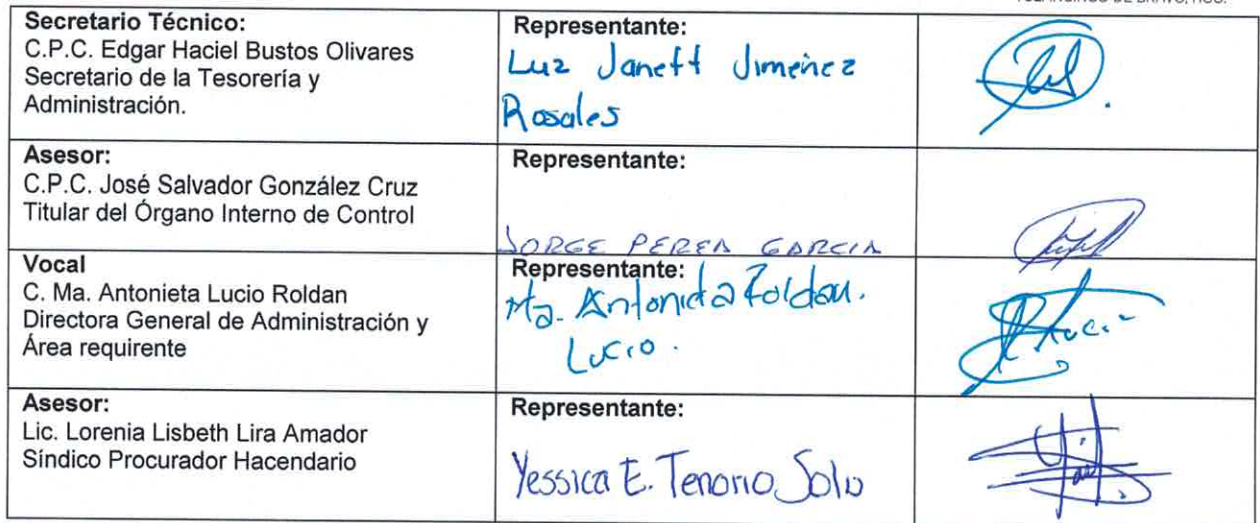 Secretario Técnico:
C.P.C. Edgar Haciel Bustos Olivares
Secretario de la Tesorería y
Administración.
Representante:
Luz Janett Jimenez
Rosales
Asesor:
C.P.C. José Salvador González Cruz
Titular del Órgano Interno de Control
Representante:
JORGE PEREA GARCIA
Vocal
C. Ma. Antonieta Lucio Roldan
Directora General de Administración y
Área requirente
Representante:
Ma. Antonieta Roldan.
Lucio.
Asesor:
Lic. Lorenia Lisbeth Lira Amador
Síndico Procurador Hacendario
Representante:
Yessica E. Tenorio